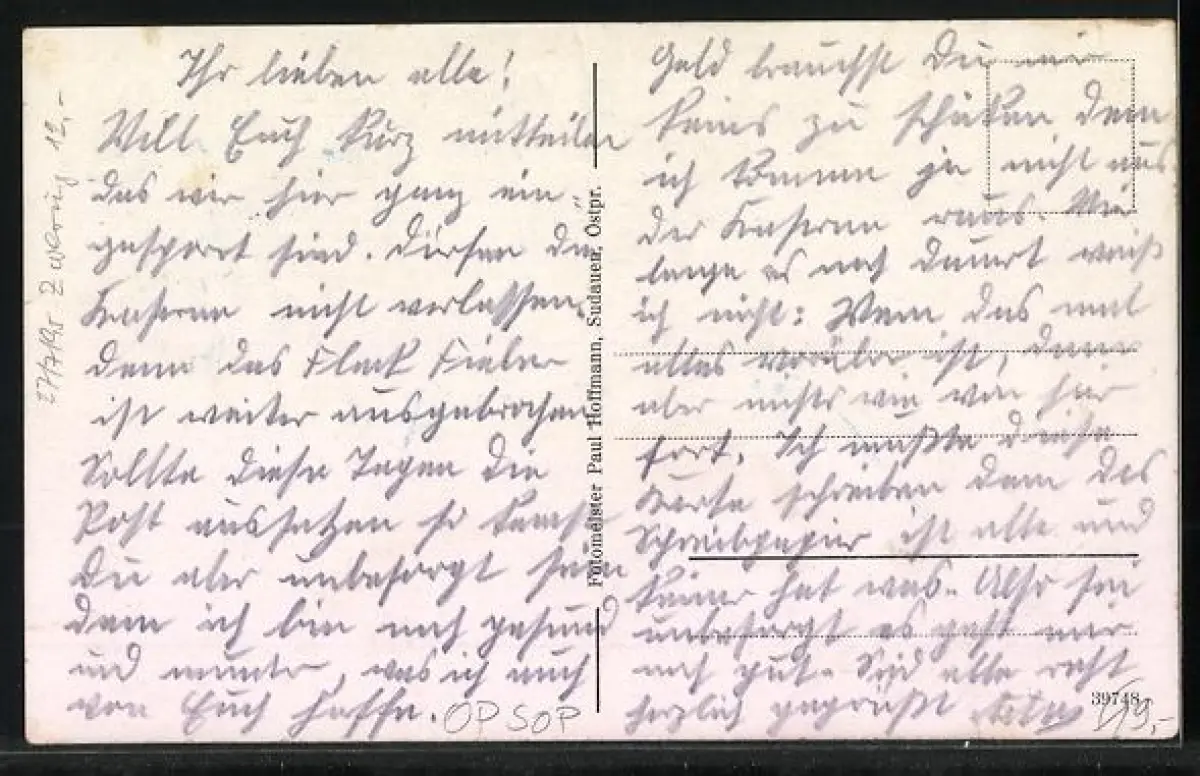 Ihr lieben alle!
Will Euch kurz mitteilen
das wir hier ganz ein-
gesperrt sind. Dürfen die
Kaserne nicht verlassen,
denn das Fleck Fieber
ist weiter ausgebrochen
Sollte diese Tagen die
Post aussetzen so kannst
Du aber unbesorgt sein
denn ich bin noch gesund
und munter, was ich auch
von Euch hoffe.
OPSOP
Geld brauchst Du mir
keins zu schicken denn
ich komme ja nicht aus
der Kaserne raus. Wie
lange es noch dauert weiß
ich nicht: Wenn das mal
alles vorüber ist, dann
aber nichts wie von hier
fort. Ich mußte diese
Karte schreiben denn das
Schreibpapier ist alle und
keiner hat was. Also sei
unbesorgt es geht mir
noch gut. Seid alle recht
herzlich gegrüßt
Fotomeister Paul Hoffmann, Sudauen, Ostpr.
39748
12,-